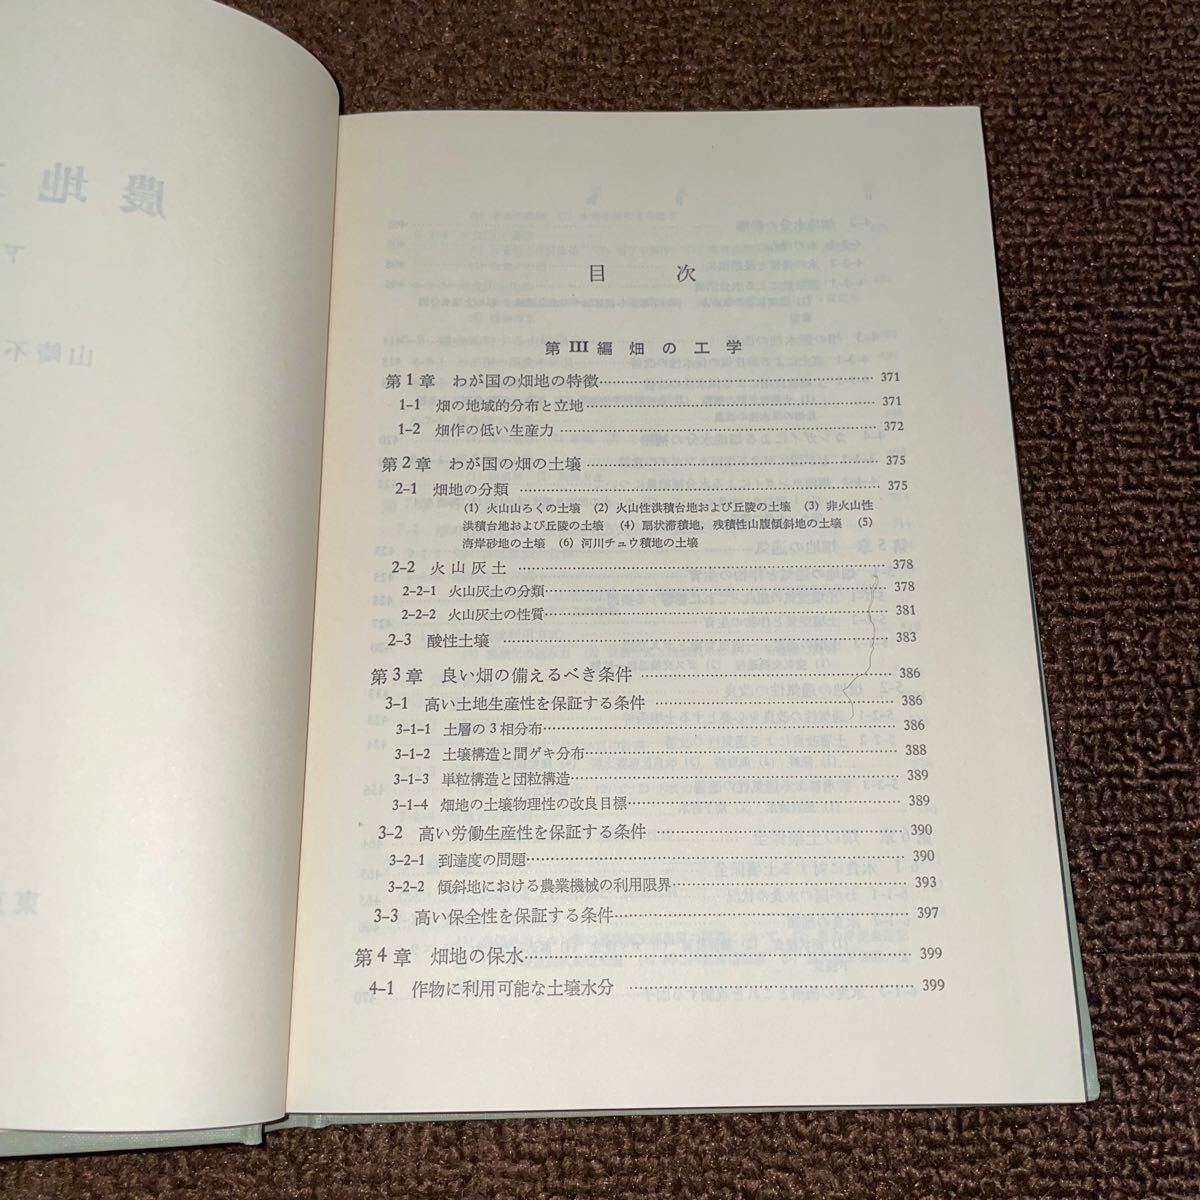 農地
下
山崎不
東
目 次
第 III 編 畑の工学
第1章 わが国の畑地の特徴 371
1-1 畑の地域的分布と立地 371
1-2 畑作の低い生産力 372
第2章 わが国の畑の土壌 375
2-1 畑地の分類 375
(1) 火山山ろくの土壌 (2) 火山性洪積台地および丘陵の土壌 (3) 非火山性
洪積台地および丘陵の土壌 (4) 扇状滞積地，残積性山腹傾斜地の土壌 (5)
海岸砂地の土壌 (6) 河川チュウ積地の土壌
2-2 火山灰土 378
2-2-1 火山灰土の分類 378
2-2-2 火山灰土の性質 381
2-3 酸性土壌 383
第3章 良い畑の備えるべき条件 386
3-1 高い土地生産性を保証する条件 386
3-1-1 土層の3相分布 386
3-1-2 土壌構造と間ゲキ分布 388
3-1-3 単粒構造と団粒構造 389
3-1-4 畑地の土壌物理性の改良目標 389
3-2 高い労働生産性を保証する条件 390
3-2-1 到達度の問題 390
3-2-2 傾斜地における農業機械の利用限界 393
3-3 高い保全性を保証する条件 397
第4章 畑地の保水 399
4-1 作物に利用可能な土壌水分 399